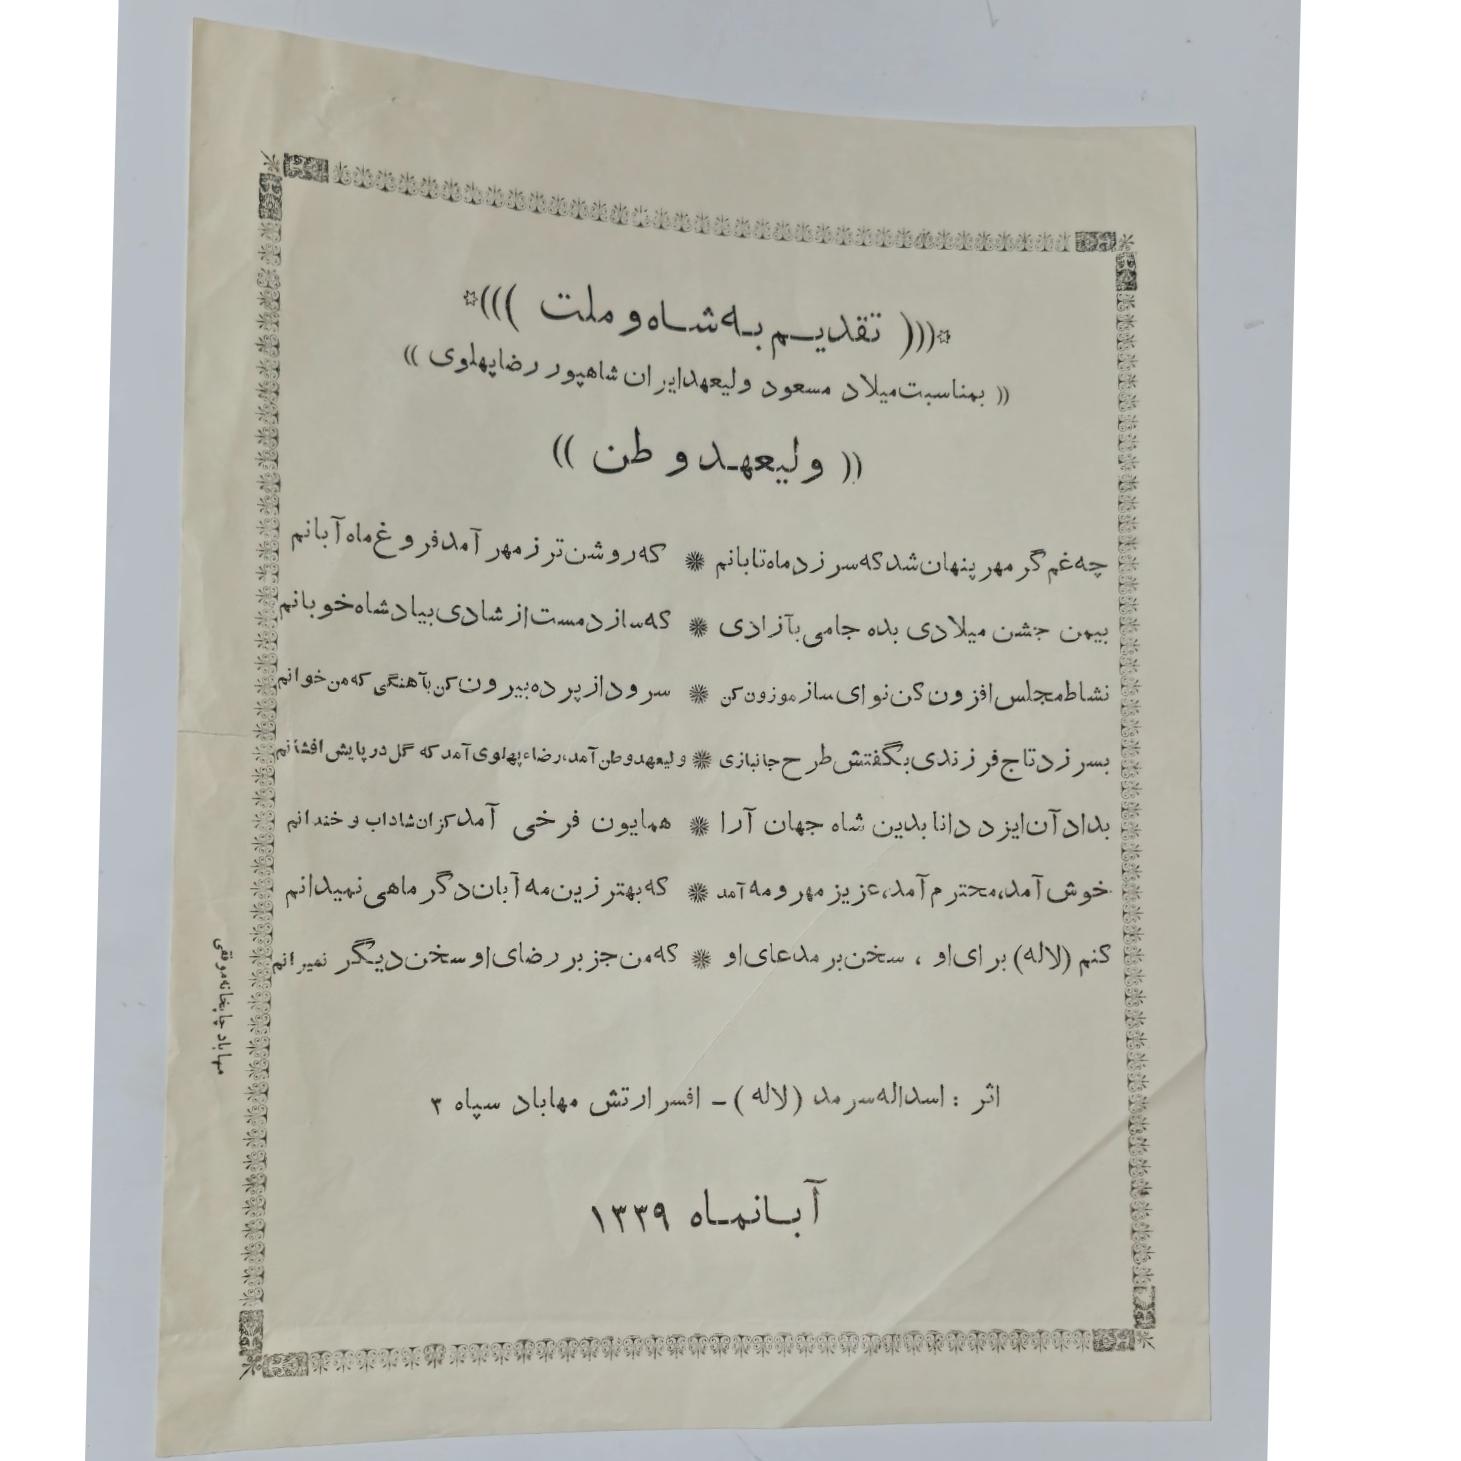 ☆((( تقدیم به شاه و ملت )))☆
(( بمناسبت میلاد مسعود ولیعهد ایران شاهپور رضا پهلوی ))
(( ولیعهد وطن ))
چه غم گر مهر پنهان شد که سر زد ماه تابانم ❋ که روشن تر ز مهر آمد فروغ ماه آبانم
بیمن جشن میلادی بده جامی بآزادی ❋ که سازد مست از شادی بیاد شاه خوبانم
نشاط مجلس افزون کن نوای ساز موزون کن ❋ سرود از پرده بیرون کن بآهنگی که من خوانم
بسر زد تاج فرزندی بگفتش طرح جانبازی ❋ ولیعهد وطن آمد، رضاء پهلوی آمد که گل در پایش افشانم
بداد آن ایزد دانا بدین شاه جهان آرا ❋ همایون فرخی آمد کزان شاداب و خندانم
خوش آمد، محترم آمد، عزیز مهر و مه آمد ❋ که بهتر زین مه آبان دگر ماهی نمیدانم
کنم (لاله) برای او ، سخن بر مدعای او ❋ که من جز بر رضای او سخن دیگر نمیرانم
اثر : اسداله سرمد (لاله) – افسر ارتش مهاباد سپاه ۳
آبانماه ۱۳۳۹
مهاباد چاپخانه موفقی